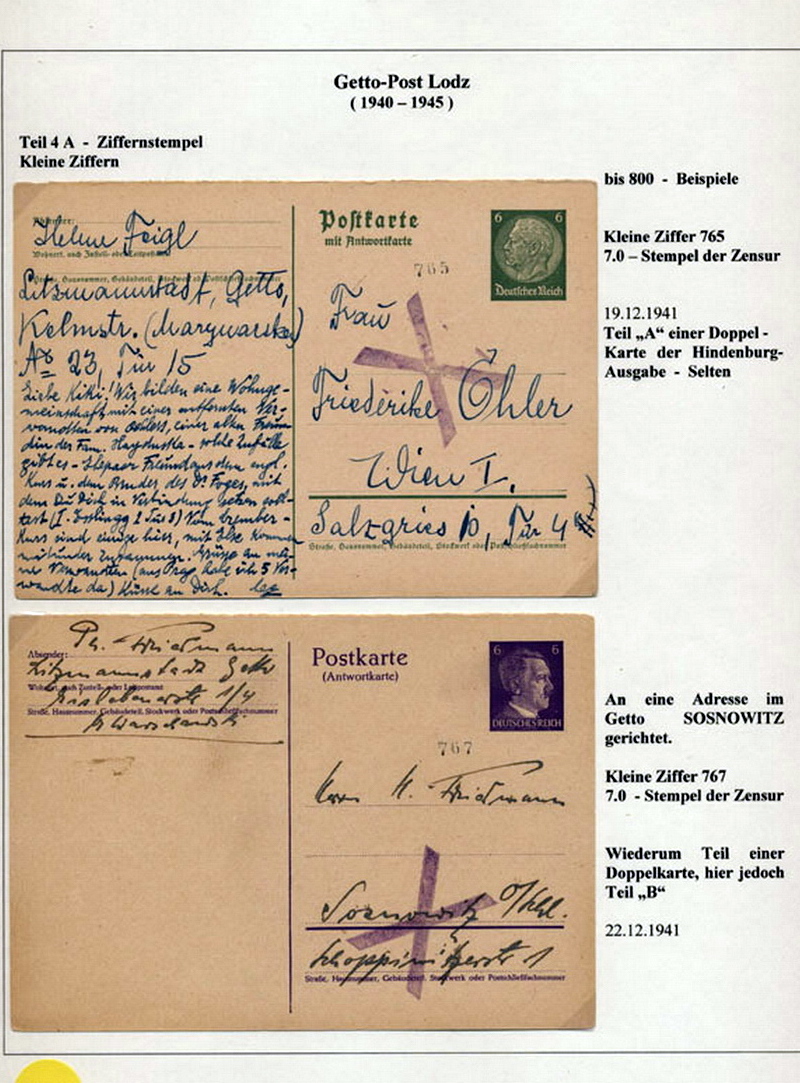 Getto-Post Lodz
( 1940 – 1945 )
Teil 4 A - Ziffernstempel
Kleine Ziffern
bis 800 - Beispiele
Kleine Ziffer 765
7.0 – Stempel der Zensur
19.12.1941
Teil „A“ einer Doppel -
Karte der Hindenburg-
Ausgabe - Selten
Absender:
Helene Feigl
Wohnort, auch Zustell- oder Leitpostamt
Straße, Hausnummer, Gebäudeteil, Stockwerk oder Postschließfachnummer
Litzmannstadt, Getto,
Kelmstr. (Marynarska)
No 23, Tür 15
Liebe Kiki! Wir bilden eine Wohnge-
meinschaft mit einer entfernten Ver-
wandten von einer alten Freun
din der Fam. - solche Zufälle
gibt es - Freund aus dem engl.
Kurs u. dem Bruder des Dr Foges, mit
dem Du Dich in Verbindung setzen soll-
test
Kurs sind einige hier, mit Else kommen
mitunter zusammen. Grüsse an
Verwandten (aus Prag habe ich 5 Ver-
wandte da) Küsse an Dich.
Postkarte
mit Antwortkarte
6 6
Deutsches Reich
765
Frau
Friederike Öhler
Wien I,
Salzgries 10, Tür 4
Straße, Hausnummer, Gebäudeteil, Stockwerk oder Postschließfachnummer
Absender:
Friedmann
Litzmannstadt Getto
Wohnort, auch Zustell- oder Leitpostamt
1/4
Straße, Hausnummer, Gebäudeteil, Stockwerk oder Postschließfachnummer
Postkarte
(Antwortkarte)
6 6
DEUTSCHES REICH
767
Herrn H. Friedmann
Sosnowitz O/Schl.
1
Straße, Hausnummer, Gebäudeteil, Stockwerk oder Postschließfachnummer
An eine Adresse im
Getto SOSNOWITZ
gerichtet.
Kleine Ziffer 767
7.0 - Stempel der Zensur
Wiederum Teil einer
Doppelkarte, hier jedoch
Teil „B“
22.12.1941